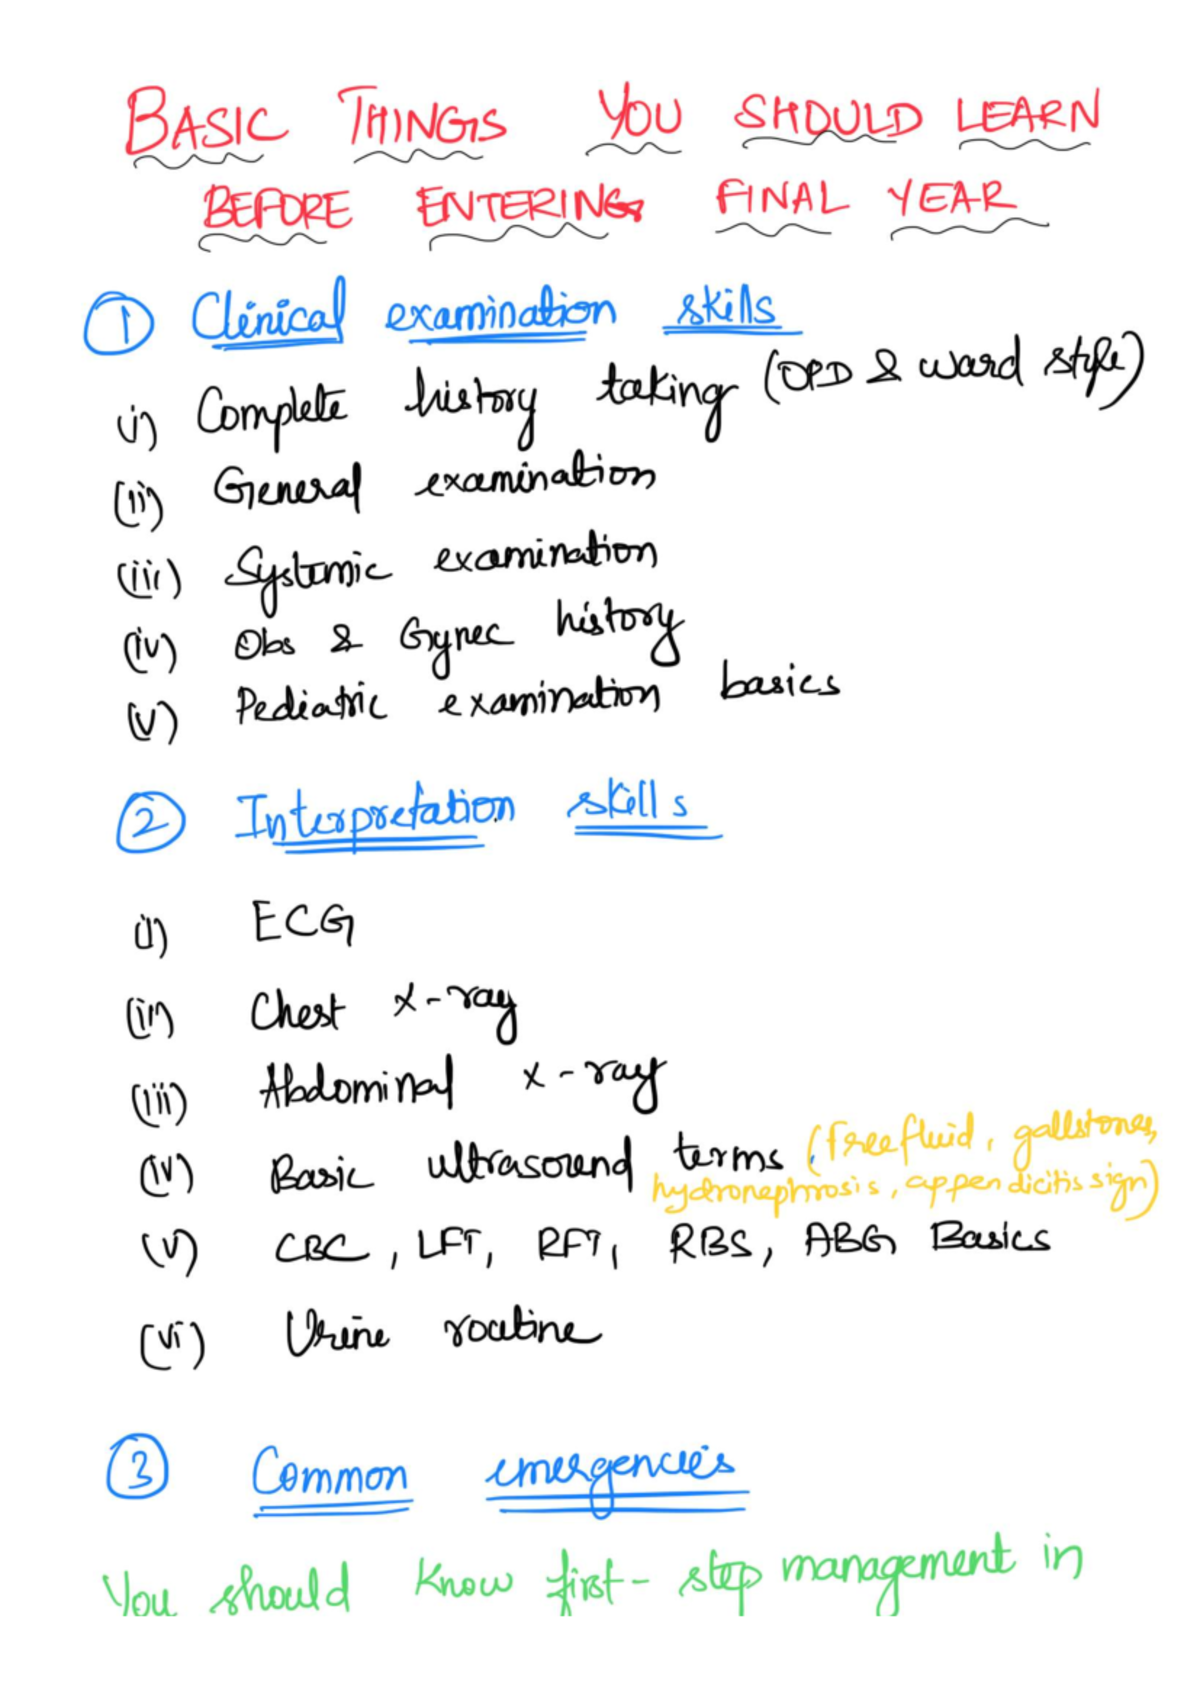 BASIC THINGS YOU SHOULD LEARN
BEFORE ENTERING FINAL YEAR
1 Clinical examination skills
(i) Complete history taking (OPD & ward style)
(ii) General examination
(iii) Systemic examination
(iv) Obs & Gynec history
(v) Pediatric examination basics
2 Interpretation skills
(i) ECG
(ii) Chest x-ray
(iii) Abdominal x-ray
(iv) Basic ultrasound terms (free fluid, gallstones,
hydronephrosis, appendicitis sign)
(v) CBC, LFT, RFT, RBS, ABG Basics
(vi) Urine routine
3 Common emergencies
You should know first-step management in